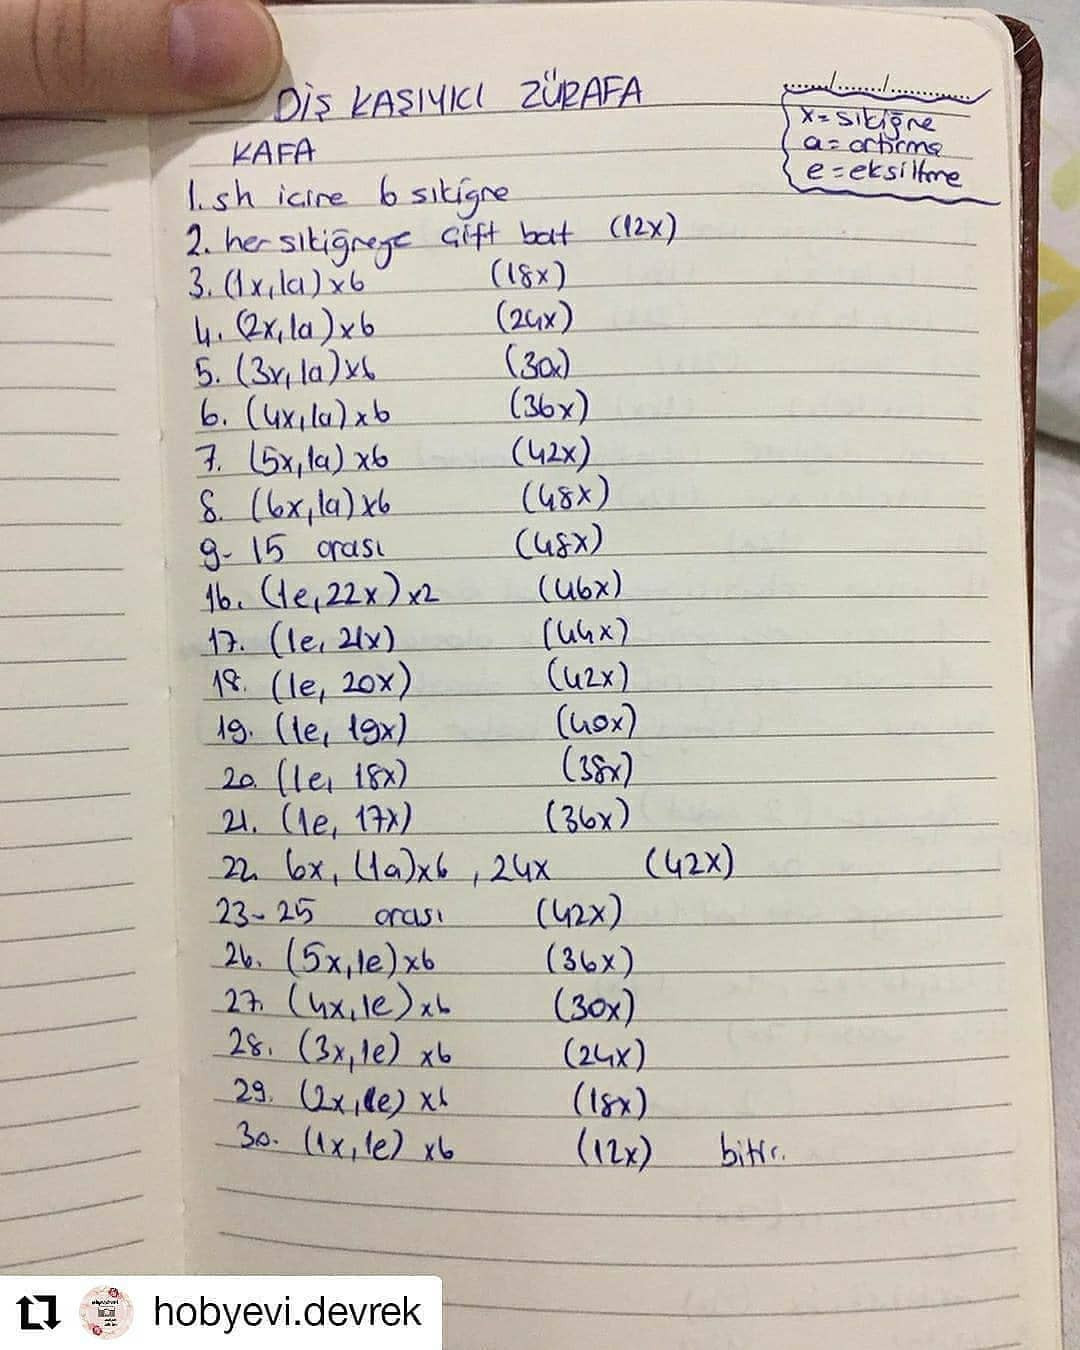 DİŞ KAŞIYICI ZÜRAFA
x = sıkiğne
a = artırma
e = eksiltme
KAFA
1. sh içine 6 sıkiğne
2. her sıkiğneye çift bat (12x)
3. (1x, 1a) x6 (18x)
4. (2x, 1a) x6 (24x)
5. (3x, 1a) x6 (30x)
6. (4x, 1a) x6 (36x)
7. (5x, 1a) x6 (42x)
8. (6x, 1a) x6 (48x)
9- 15 arası (48x)
16. (1e, 22x) x2 (46x)
17. (1e, 21x) (44x)
18. (1e, 20x) (42x)
19. (1e, 19x) (40x)
20. (1e, 18x) (38x)
21. (1e, 17x) (36x)
22. 6x, (1a)x6, 24x (42x)
23-25 arası (42x)
26. (5x, 1e) x6 (36x)
27. (4x, 1e) x6 (30x)
28. (3x, 1e) x6 (24x)
29. (2x, 1e) x6 (18x)
30. (1x, 1e) x6 (12x) bitir.
hobyevi.devrek